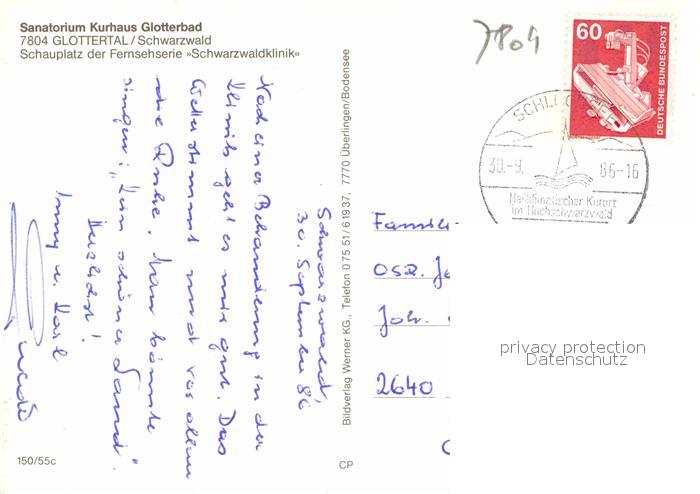 Sanatorium Kurhaus Glotterbad
7804 GLOTTERTAL / Schwarzwald
Schauplatz der Fernsehserie »Schwarzwaldklinik«
Schwarzwald,
30. September 86
Nach einer Behandlung in der
Klinik geht es mir gut. Das
Wetter stimmt und vor allem
die Ruhe. Man könnte
singen: „Kein schöner Land".
Herzlichst!
u. Karl
150/55c
CP
Bildverlag Werner KG., Telefon 0 75 51 / 6 19 37, 7770 Überlingen/Bodensee
7804
60
DEUTSCHE BUNDESPOST
30.-9.
86-16
Heilklimatischer Kurort
im Hochschwarzwald
Familie
Joh.
2640
privacy protection
Datenschutz